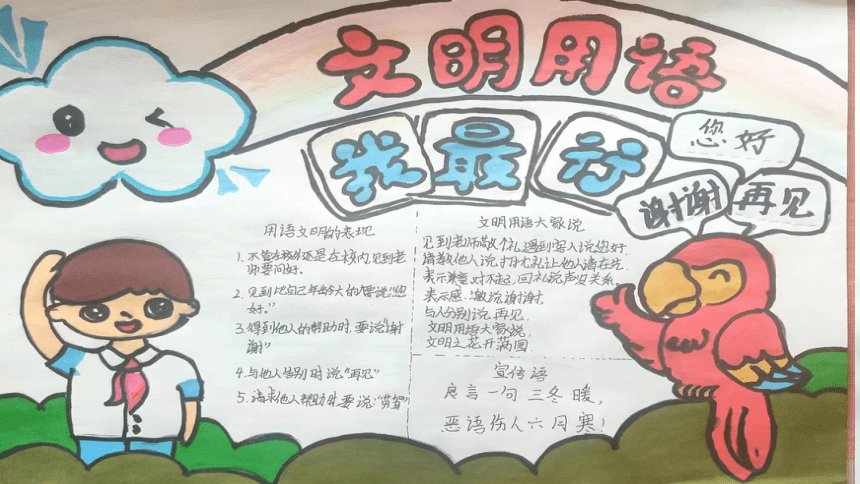 文明用语
我最行
您好
谢谢
再见
用语文明的表现
1、不管在校外还是在校内,见到老
师要问好。
2、见到比自己年龄大的要说“您
好。”
3、得到他人的帮助时,要说“谢
谢”
4、与他人告别时说“再见”
5、请求他人帮时,要说:“劳驾”
文明用语大家说
见到老师敬个礼,遇到客人说您好.
请教他人说打扰,礼让他人请在先.
表示兼意对不起,回礼说声没关系.
表示感激说谢谢.
与人分别说再见.
文明用语大家说.
文明之花开满园.
宣传语
良言一句三冬暖,
恶语伤人六月寒!